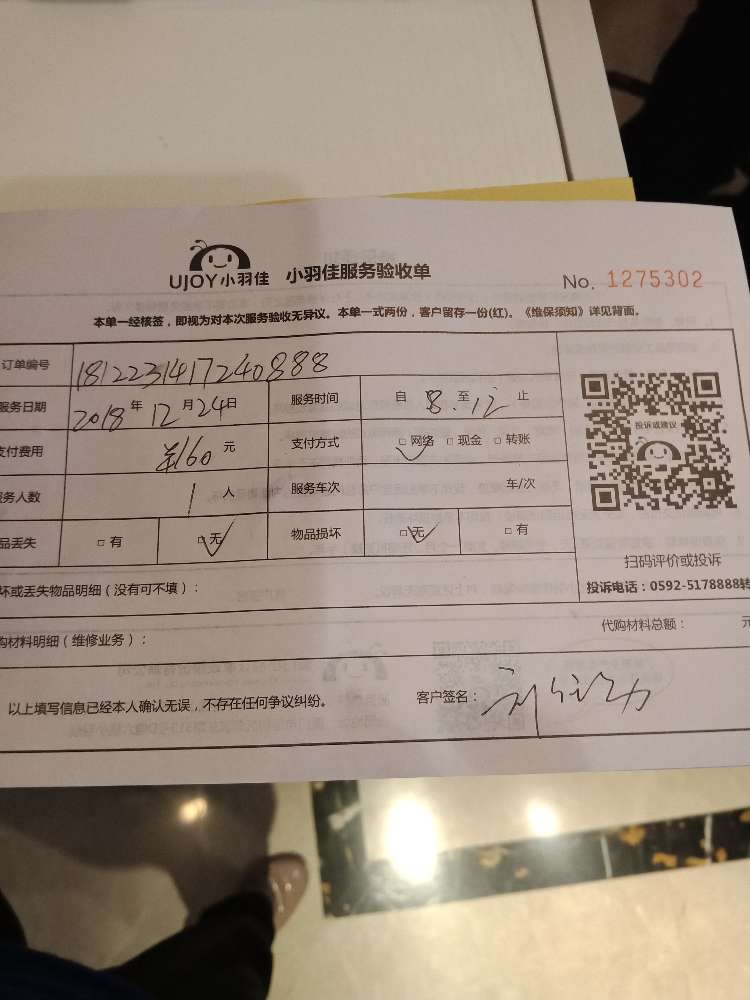 UJOY小羽佳 小羽佳服务验收单 No. 1275302
本单一经核签，即视为对本次服务验收无异议。本单一式两份，客户留存一份(红)。《维保须知》详见背面。
订单编号 1812231417240888
服务日期 2018 年 12 月 24 日 服务时间 自 8. 至 12 止
支付费用 ¥160 元 支付方式 □ 网络 □ 现金 □ 转账
投诉或建议
务人数 1 人 服务车次 车/次
品丢失 □ 有 □ 无 物品损坏 □ 无 □ 有
扫码评价或投诉
坏或丢失物品明细（没有可不填）：
投诉电话：0592-5178888转
购材料明细（维修业务）：
代购材料总额： 元
以上填写信息已经本人确认无误，不存在任何争议纠纷。 客户签名：